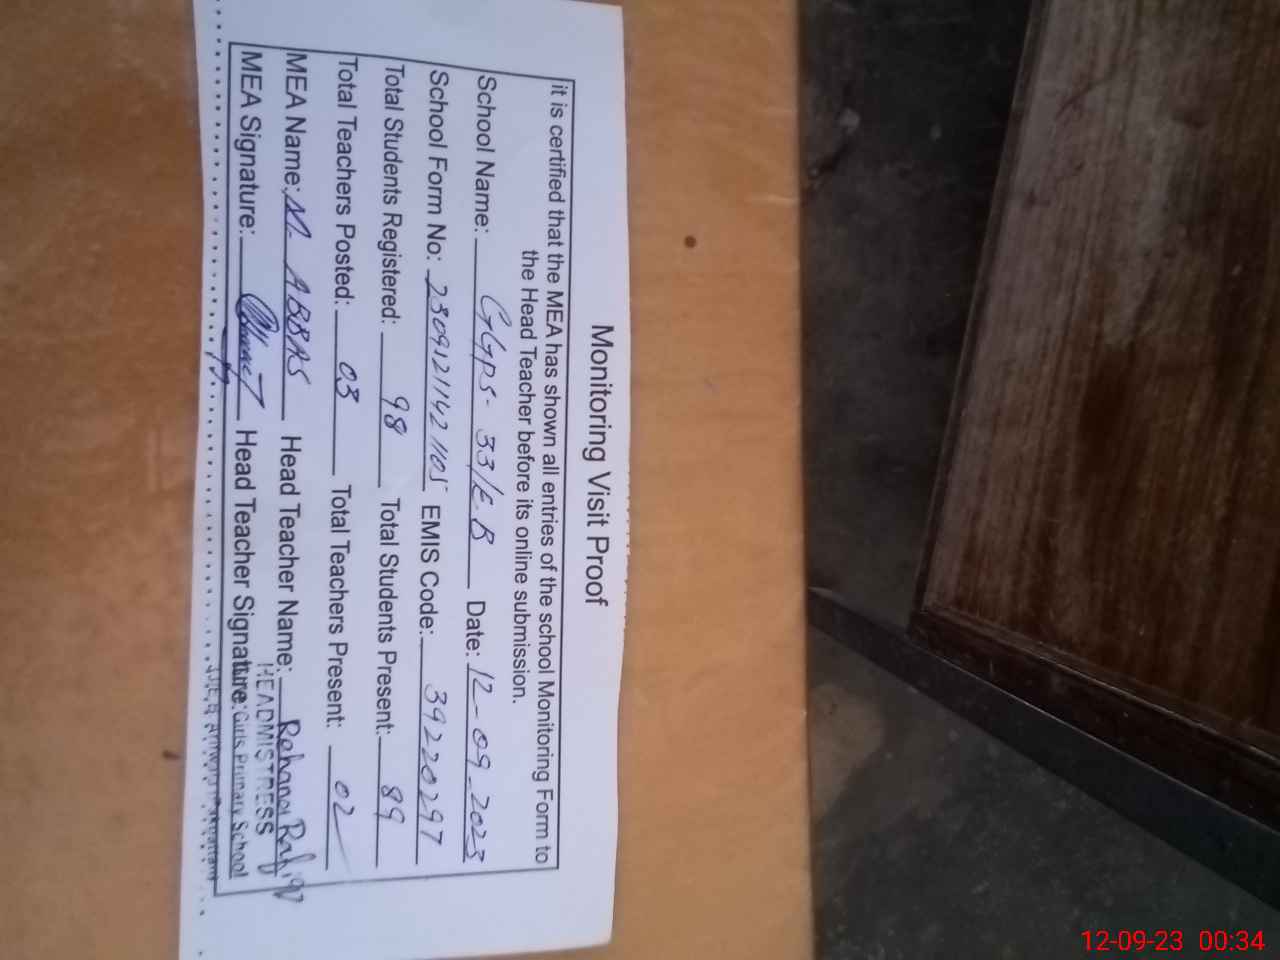 Monitoring Visit Proof
it is certified that the MEA has shown all entries of the school Monitoring Form to
the Head Teacher before its online submission.
School Name: GGPS- 33/E.B Date: 12-09-2023
School Form No: 2309121142105 EMIS Code: 39220297
Total Students Registered: 98 Total Students Present: 89
Total Teachers Posted: 03 Total Teachers Present: 02
MEA Name: M. ABBAS Head Teacher Name: Rehana Rafiq
HEADMISTRESS
MEA Signature: Head Teacher Signature: Girls Primary School
12-09-23 00:34